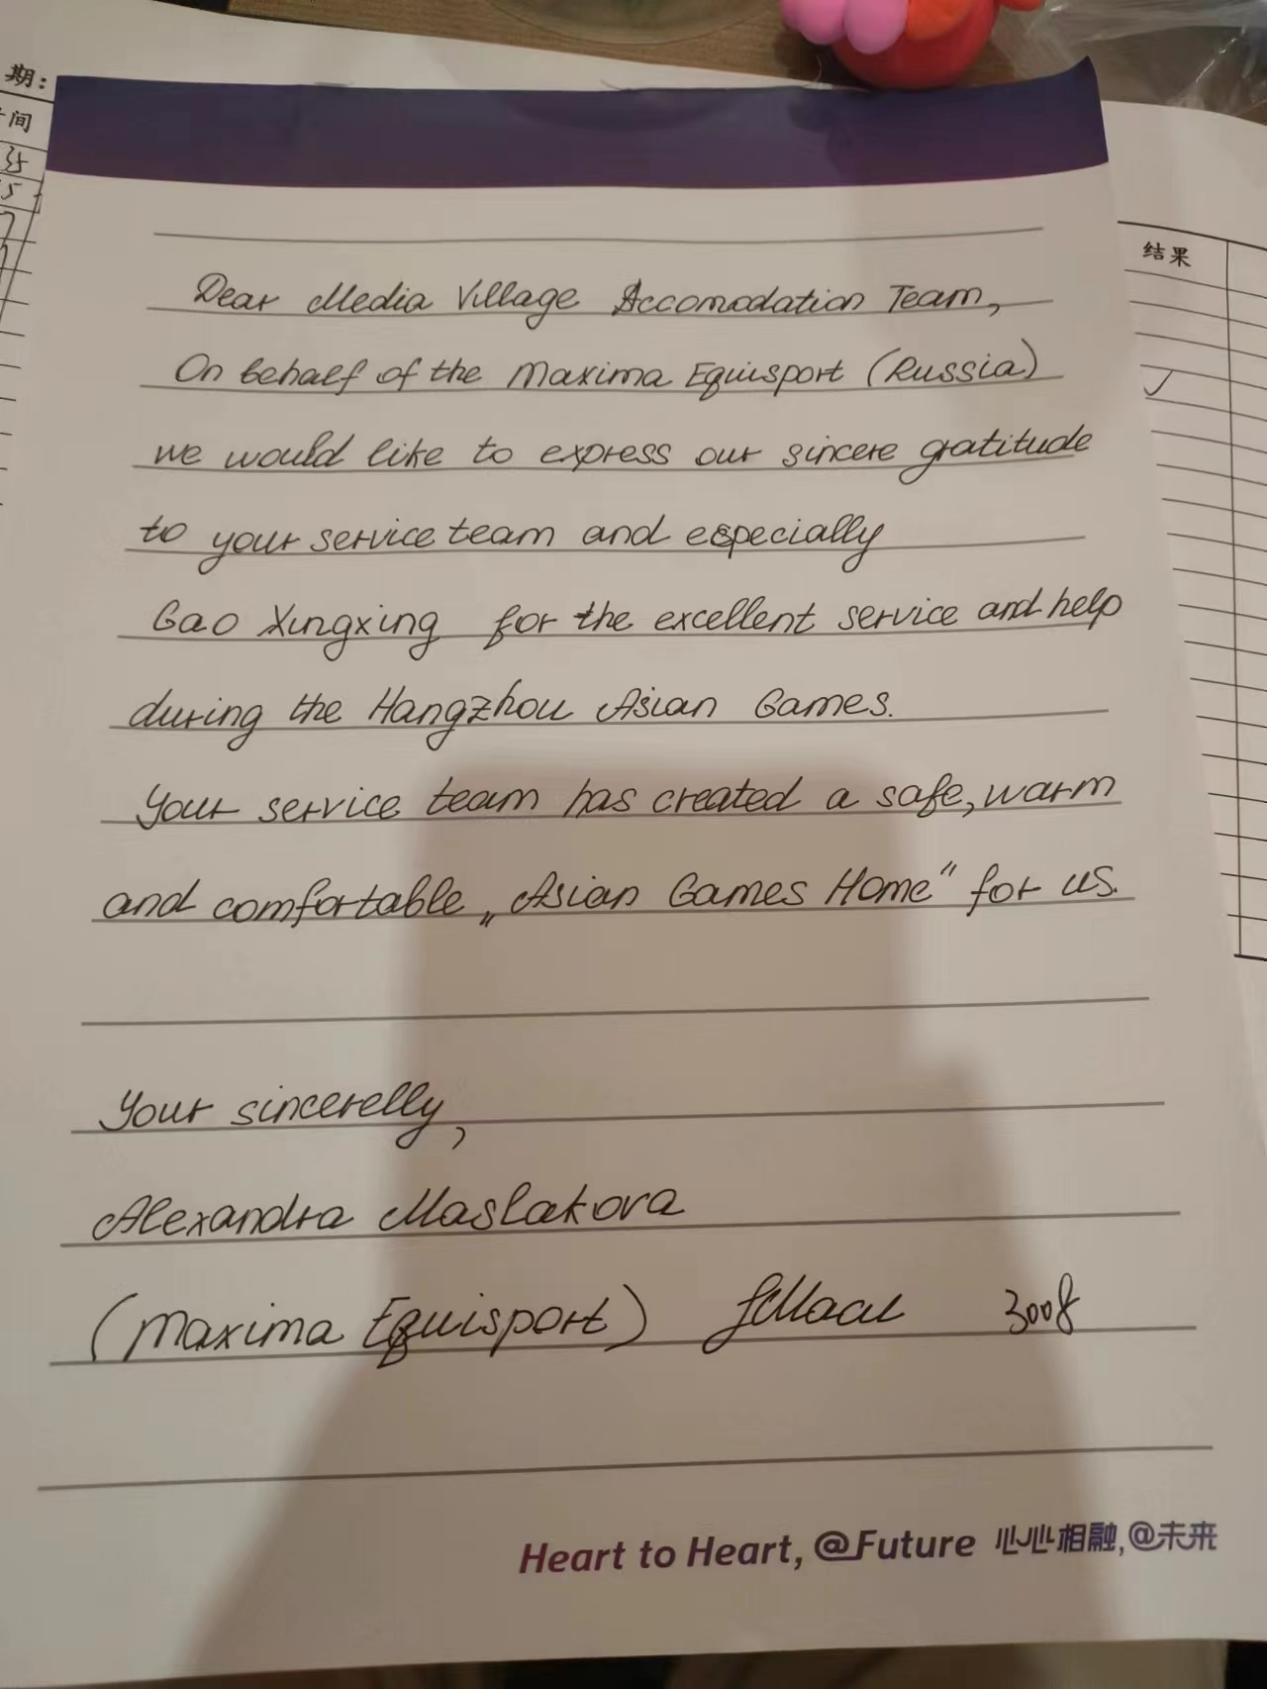 期:
间
结果
Dear Media Village Accomodation Team,
On behalf of the Maxima Equisport (Russia)
we would like to express our sincere gratitude
to your service team and especially
Gao Xingxing for the excellent service and help
during the Hangzhou Asian Games.
Your service team has created a safe, warm
and comfortable „Asian Games Home" for us.
Your sincerelly,
Alexandra Maslakova
(Maxima Equisport) 3008
Heart to Heart, @Future 心心相融,@未来